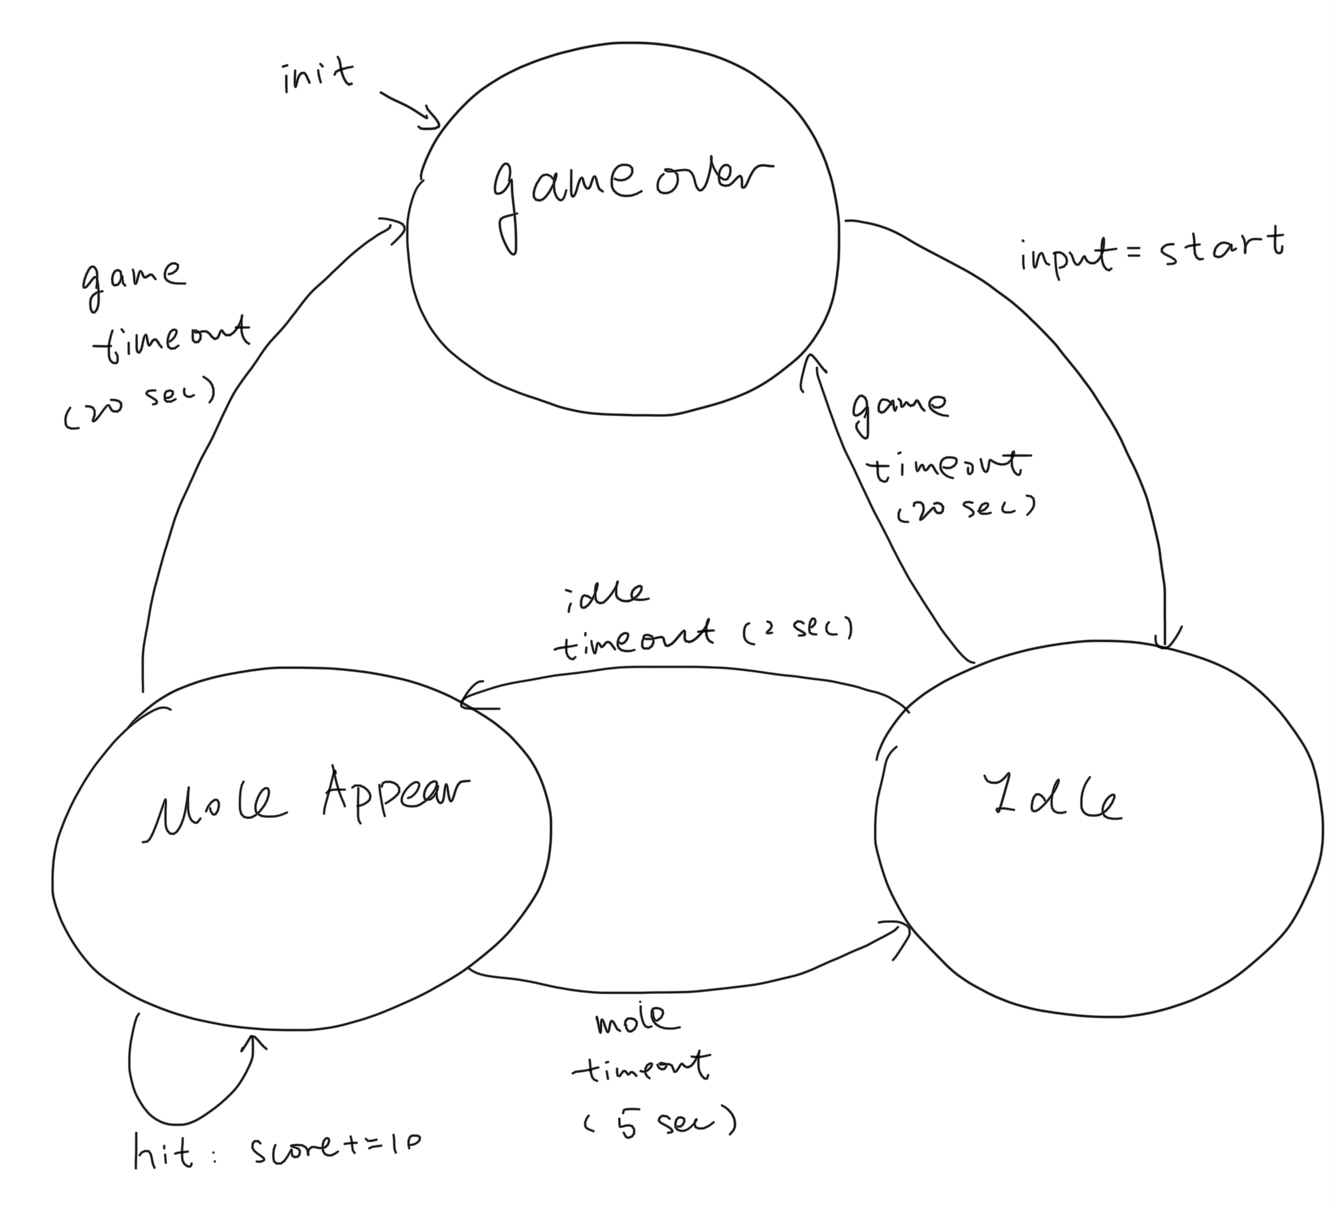 init
gameover
input = start
game
timeout
(20 sec)
game
timeout
(20 sec)
idle
timeout (2 sec)
Mole Appear
Idle
mole
timeout
(5 sec)
hit: score+=10